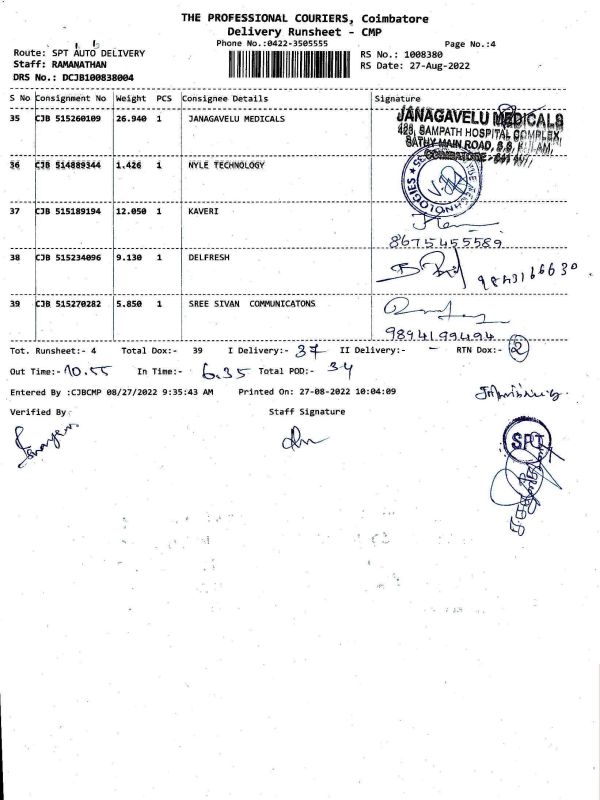 THE PROFESSIONAL COURIERS, Coimbatore
Delivery Runsheet - CMP
Phone No.:0422-3505555 Page No.:4
Route: SPT AUTO DELIVERY RS No.: 1008380
Staff: RAMANATHAN RS Date: 27-Aug-2022
DRS No.: DCJB100838004
S No Consignment No Weight PCS Consignee Details Signature
35 CJB 515260109 26.940 1 JANAGAVELU MEDICALS
JANAGAVELU MEDICALS
423, SAMPATH HOSPITAL COMPLEX,
SATHY MAIN ROAD, S.S. KULAM,
COIMBATORE - 641 107
36 CJB 514889344 1.426 1 NYLE TECHNOLOGY
37 CJB 515189194 12.050 1 KAVERI
8675455589
38 CJB 515234096 9.130 1 DELFRESH
9843166630
39 CJB 515270282 5.850 1 SREE SIVAN COMMUNICATONS
9894199494
Tot. Runsheet:- 4 Total Dox:- 39 I Delivery:- 37 II Delivery:- - RTN Dox:- 2
Out Time:- 10.55 In Time:- 6.35 Total POD:- 34
Entered By :CJBCMP 08/27/2022 9:35:43 AM Printed On: 27-08-2022 10:04:09
Verified By Staff Signature
SPT